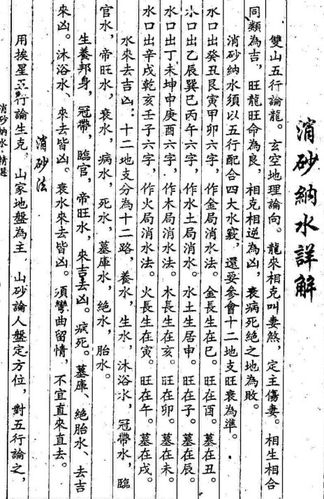 消砂納水詳解
雙山五行論龍。玄空地理論向。龍來相克叫妻煞,定主傷妻。相生相合
同類為吉,旺龍旺命為良,相克相逆為凶,衰病死絕之地為敗。
消砂納水須以五行配合四大水竅,還要參會十二地支旺衰為準。
水口出癸丑艮寅甲卯六字,作金局消水法。金長生在巳。旺在酉。墓在丑。
水口出乙辰巽巳丙午六字,作水土局消水法。水土生居申。旺在子。墓在辰。
水口出丁未坤申庚酉六字,作木局消水法。木長生在亥。旺在卯。墓在未。
水口出辛戌乾亥壬子六字,作火局消水法。火長生在寅。旺在午。墓在戌。
水來去吉凶:十二地支分為十二路,養水,生水,沐浴水,冠帶水,臨
官水,帝旺水,衰水,病水,死水,墓庫水,絕水,胎水。
生養邦身,冠帶,臨官,帝旺水,來吉去凶。病死。墓庫、絕胎水、去吉
來凶。沐浴水、來去皆凶。衰水來去皆凶。須彎曲留情,不宜直來直去。
消砂法
用挨星五行論生克。山家地盤為主,山砂論人盤定方位,對五行論之,
消砂納水